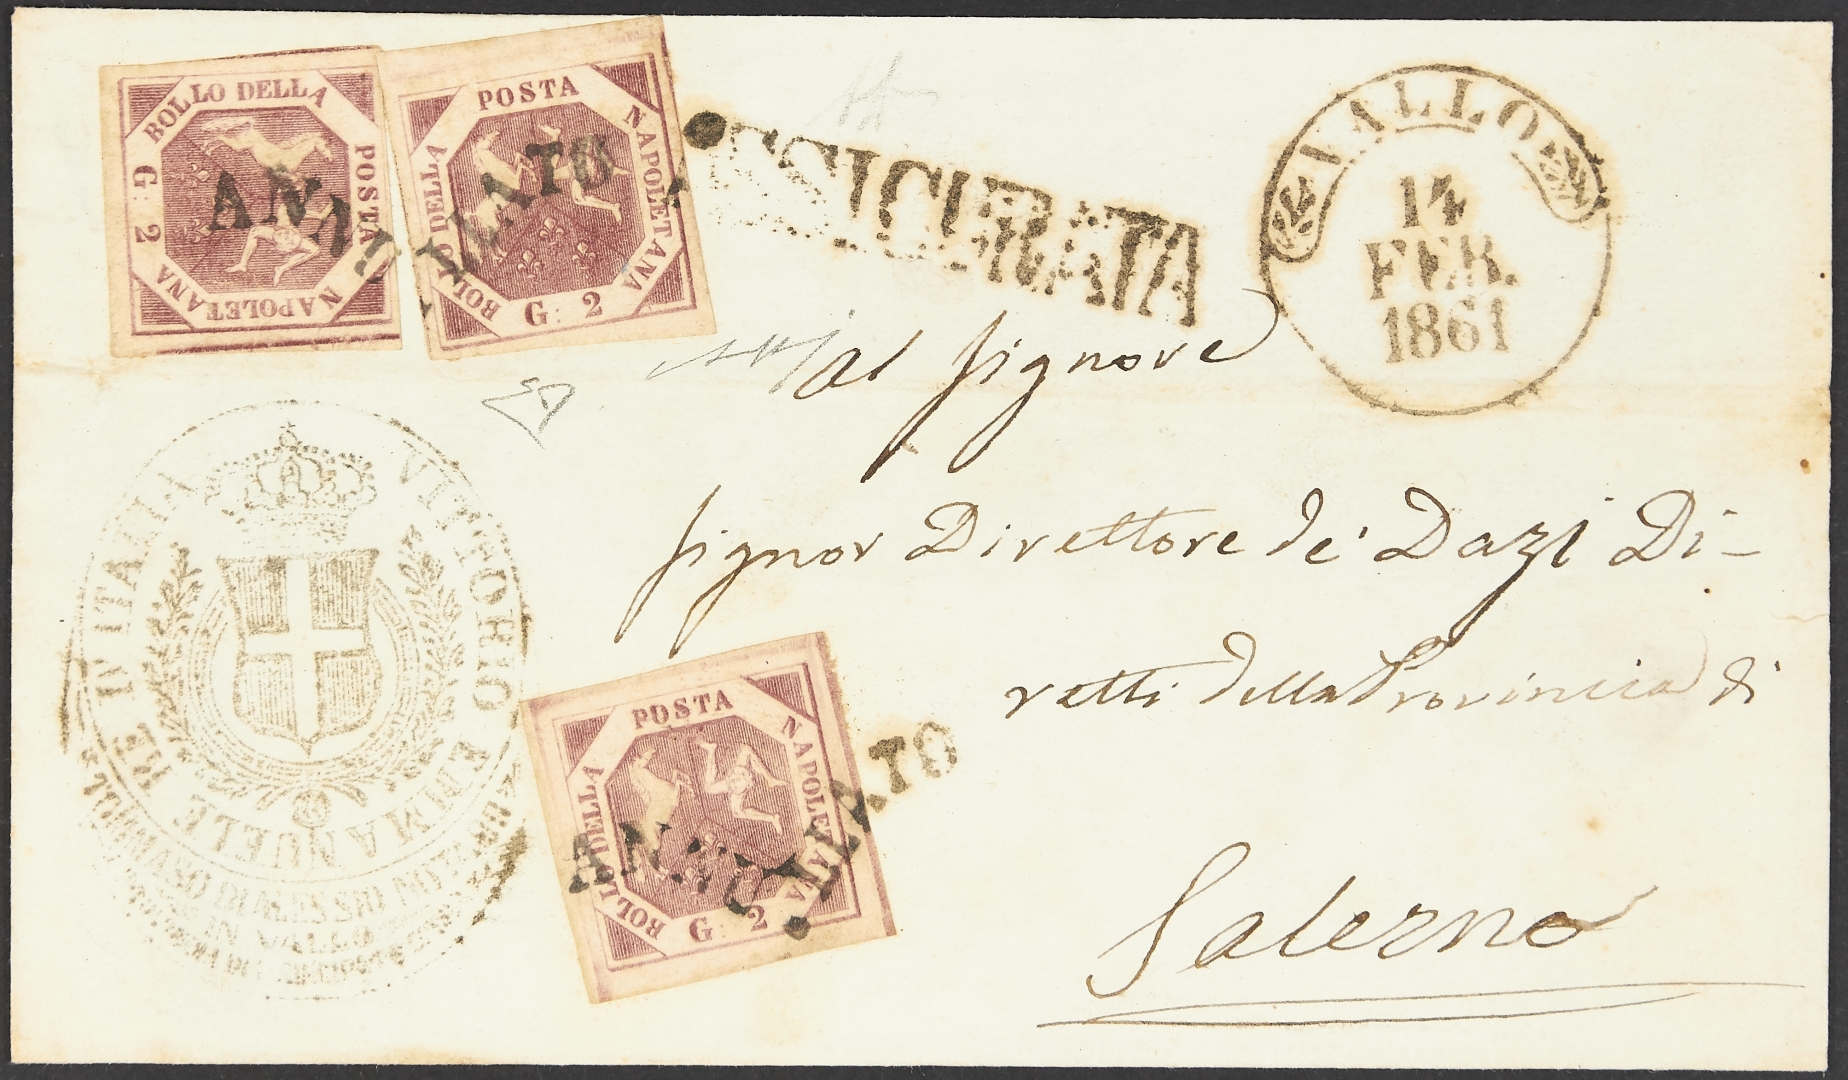 BOLLO DELLA
POSTA
NAPOLETANA
G: 2
BOLLO DELLA
POSTA
NAPOLETANA
G: 2
ANNULLATO
ASSICURATA
VALLO
14
FEB.
1861
al Signore
Signor Direttore de' Dazi Di-
retti della Provincia di
Salerno
VITTORIO EMANUELE RE D'ITALIA
IN VALLO
BOLLO DELLA
POSTA
NAPOLETANA
G: 2
ANNULLATO